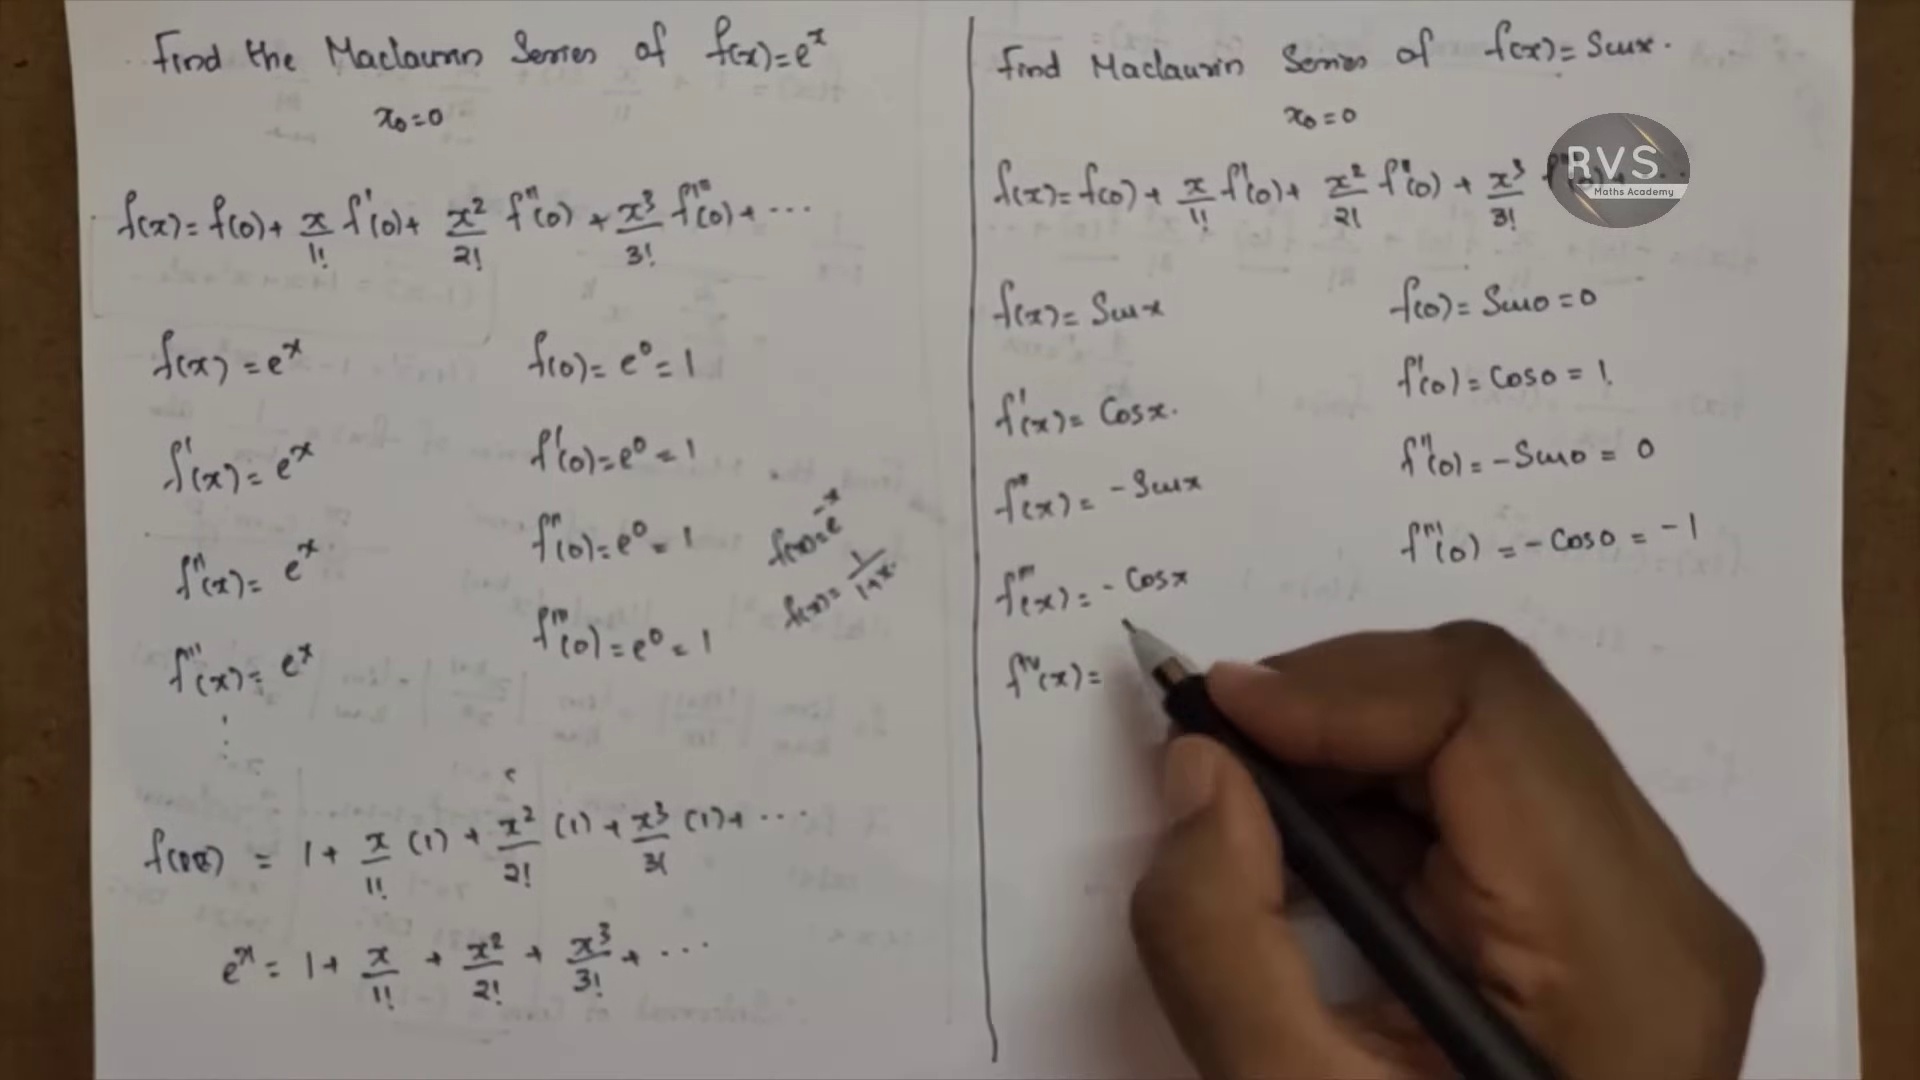 Find the Maclaurin Series of f(x)=e^x
x₀=0
f(x)=f(0)+ x/1! f'(0)+ x²/2! f''(0) + x³/3! f'''(0)+ ...
f(x) = e^x
f(0)= e⁰= 1
f'(x)= e^x
f'(0)=e⁰ = 1
f''(x)= e^x
f''(0)=e⁰ = 1
f'''(x)= e^x
f'''(0)=e⁰ = 1
f(x)=e^-x
f(x)= 1/1+x.
= 1+ x/1! (1) + x²/2! (1) + x³/3! (1)+ ...
e^x = 1+ x/1! + x²/2! + x³/3! + ...
Find Maclaurin Series of f(x)= Sinx.
x₀=0
f(x)=f(0)+ x/1! f'(0)+ x²/2! f''(0) + x³/3!
RVS
Maths Academy
f(x)= Sinx
f(0)= Sin0=0
f'(x)= Cosx.
f'(0)= Cos0 = 1.
f''(x)= -Sinx
f''(0)= -Sin0 = 0
f'''(x)= - Cosx
f'''(0) = - Cos0 = -1
f^IV(x)=